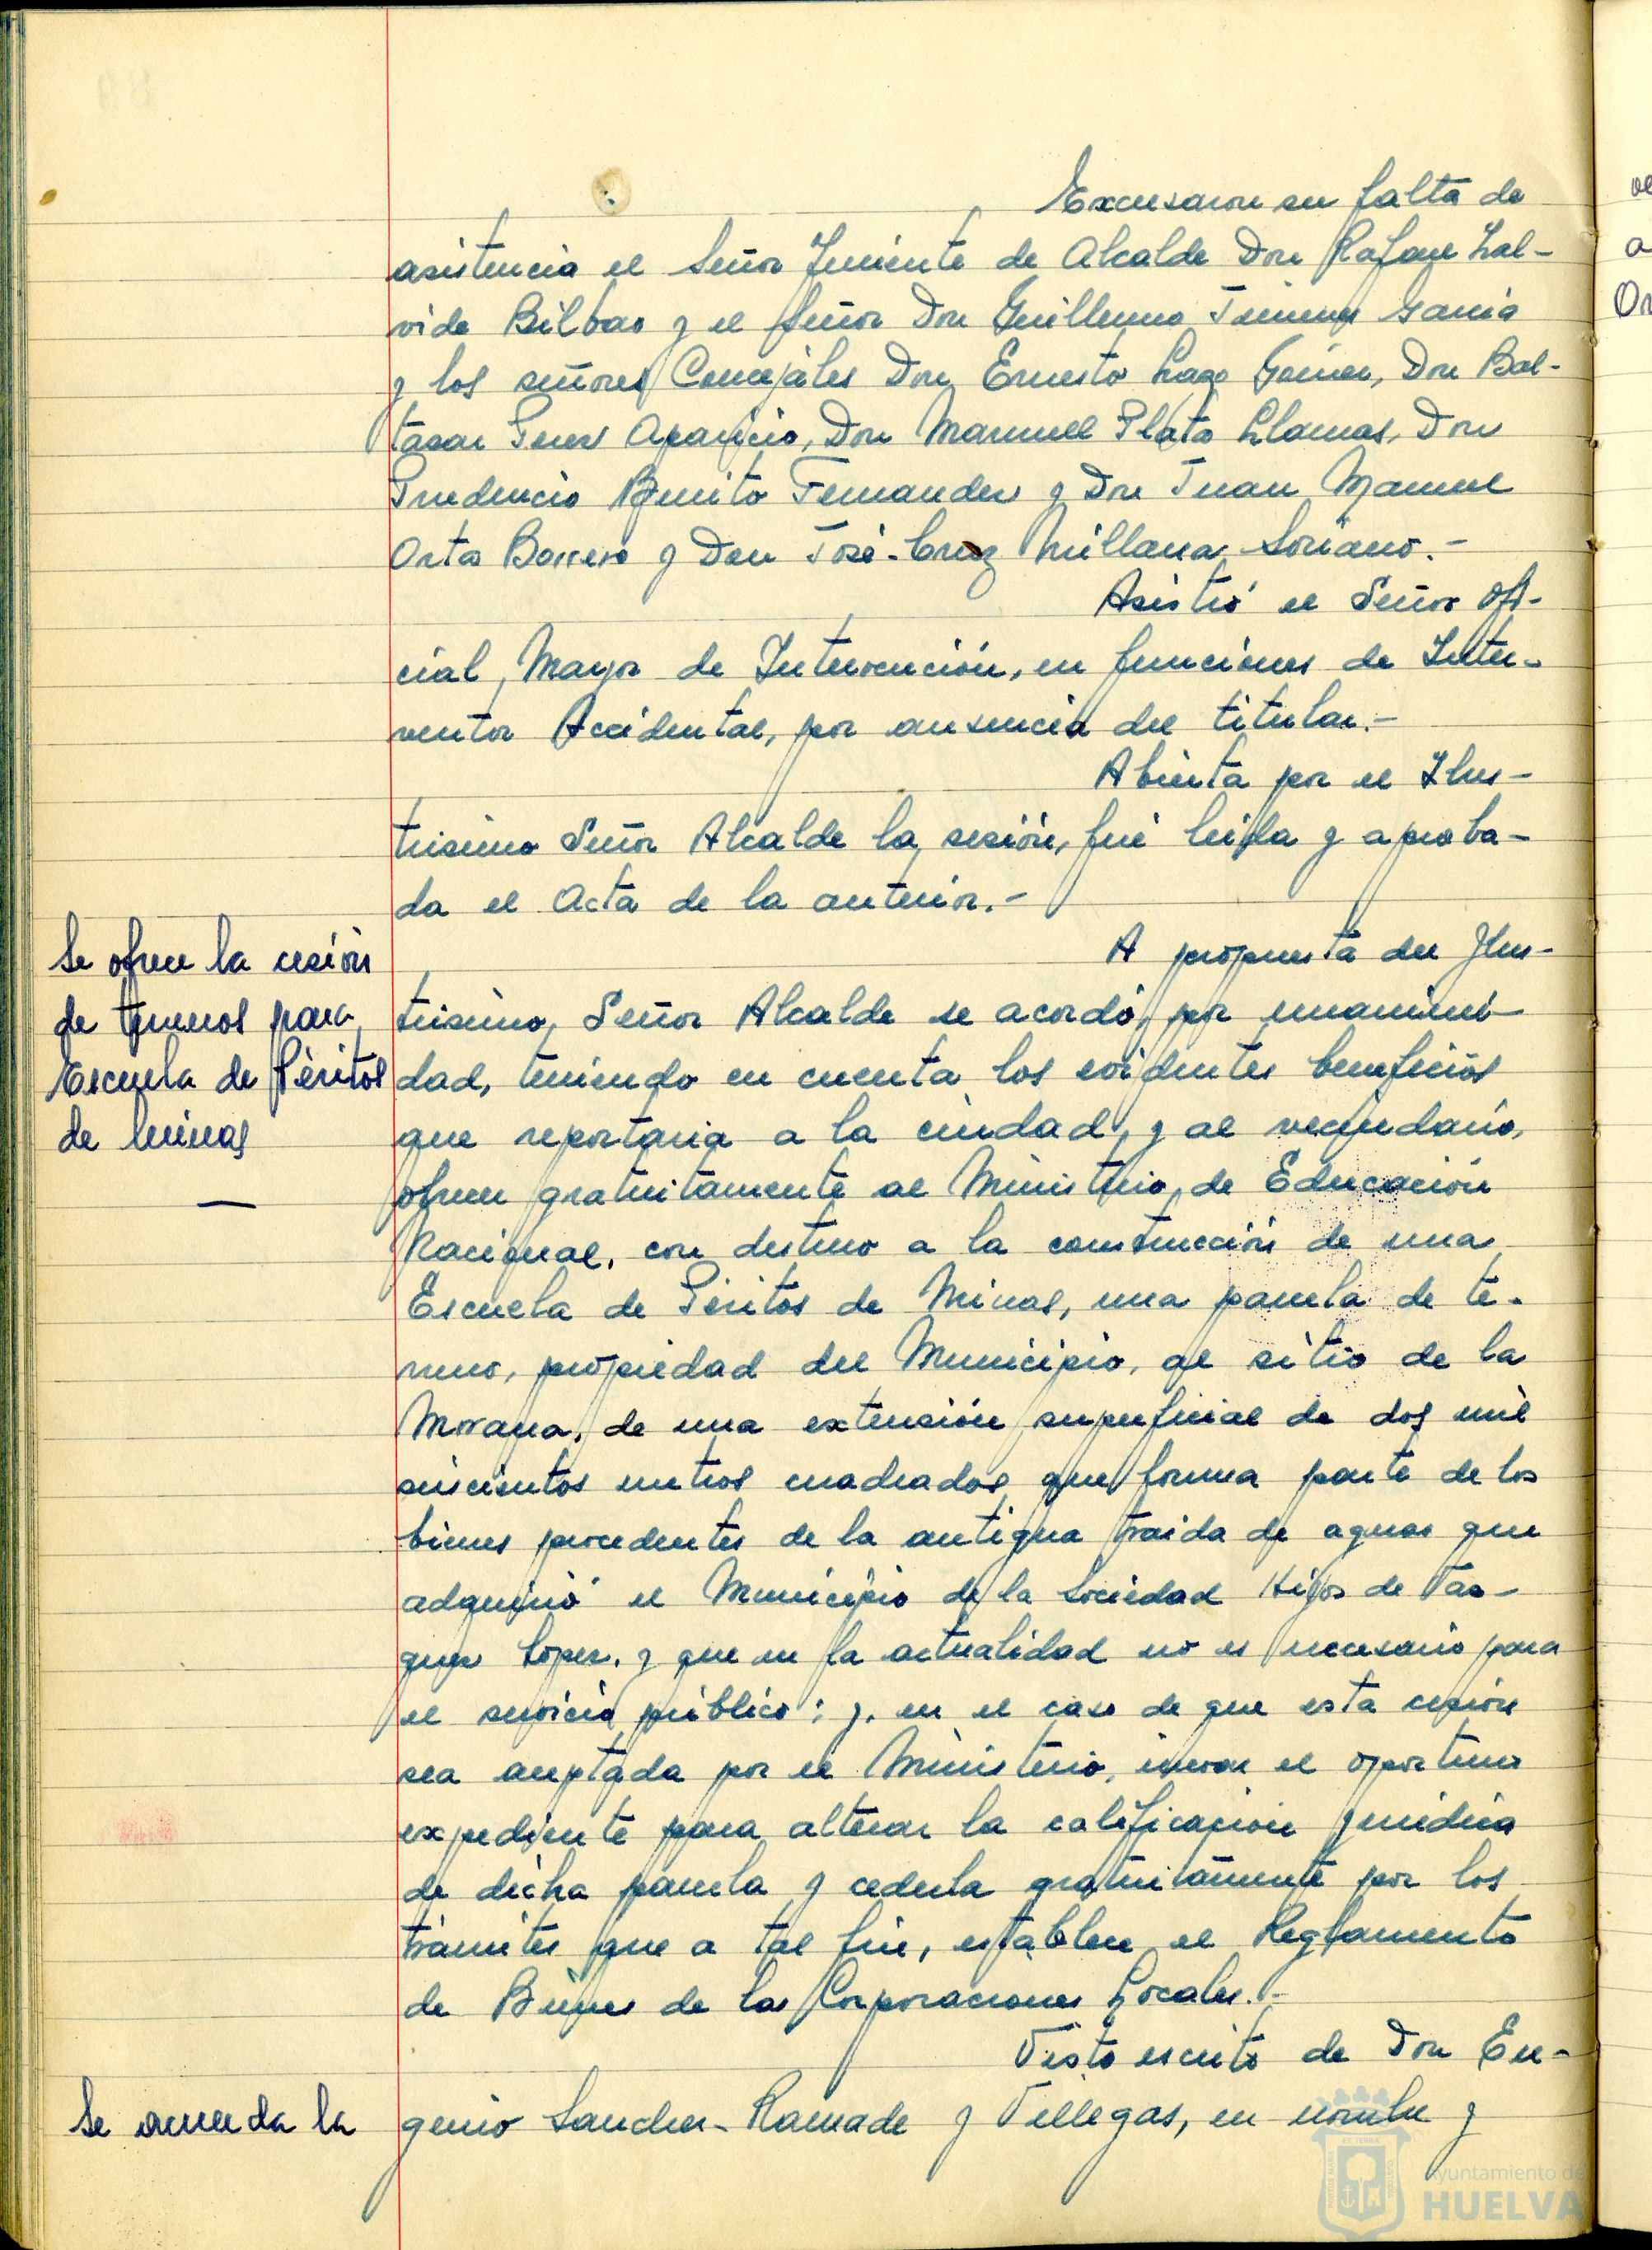 Excusaron su falta de
asistencia el Señor Teniente de Alcalde Don Rafael Zal-
vide Bilbao y el Señor Don Guillermo Jimenez Garcia
y los señores Concejales Don Ernesto Lago Gómez, Don Bal-
tasar Perez Aparicio, Don Manuel Plata Llamas, Don
Prudencio Benito Fernandez y Don Juan Manuel
Orta Borrero y Don José-Cruz Millana Soriano.-
Asistió el Señor Ofi-
cial Mayor de Intervención, en funciones de Inter-
ventor Accidental, por ausencia del titular.-
Abierta por el Ilus-
trisimo Señor Alcalde la sesión, fué leida y aproba-
da el Acta de la anterior.-
Se ofrece la cesión
de terrenos para
Escuela de Péritos
de Minas
A propuesta del Ilus-
trisimo Señor Alcalde se acordó, por unanimi-
dad, teniendo en cuenta los evidentes beneficios
que reportaria a la ciudad y al vecindario,
ofrecer gratuitamente al Ministerio de Educación
Nacional, con destino a la construcción de una
Escuela de Péritos de Minas, una parcela de te-
rreno, propiedad del Municipio, al sitio de la
Morana, de una extensión superficial de dos mil
seiscientos metros cuadrados que forma parte de los
bienes procedentes de la antigua traida de aguas que
adquirió el Municipio de la Sociedad Hijos de Vaz-
quez Lopez, y que en la actualidad no es necesario para
el servicio público; y, en el caso de que esta cesión
sea aceptada por el Ministerio, incoar el oportuno
expediente para alterar la calificación juridica
de dicha parcela y cederla gratuitamente por los
trámites que a tal fin, establece el Reglamento
de Bienes de las Corporaciones Locales.-
Visto escrito de Don Eu-
Se acuerda la
genio Sanchez-Ramade y Villegas, en nombre y
Ayuntamiento de
HUELVA